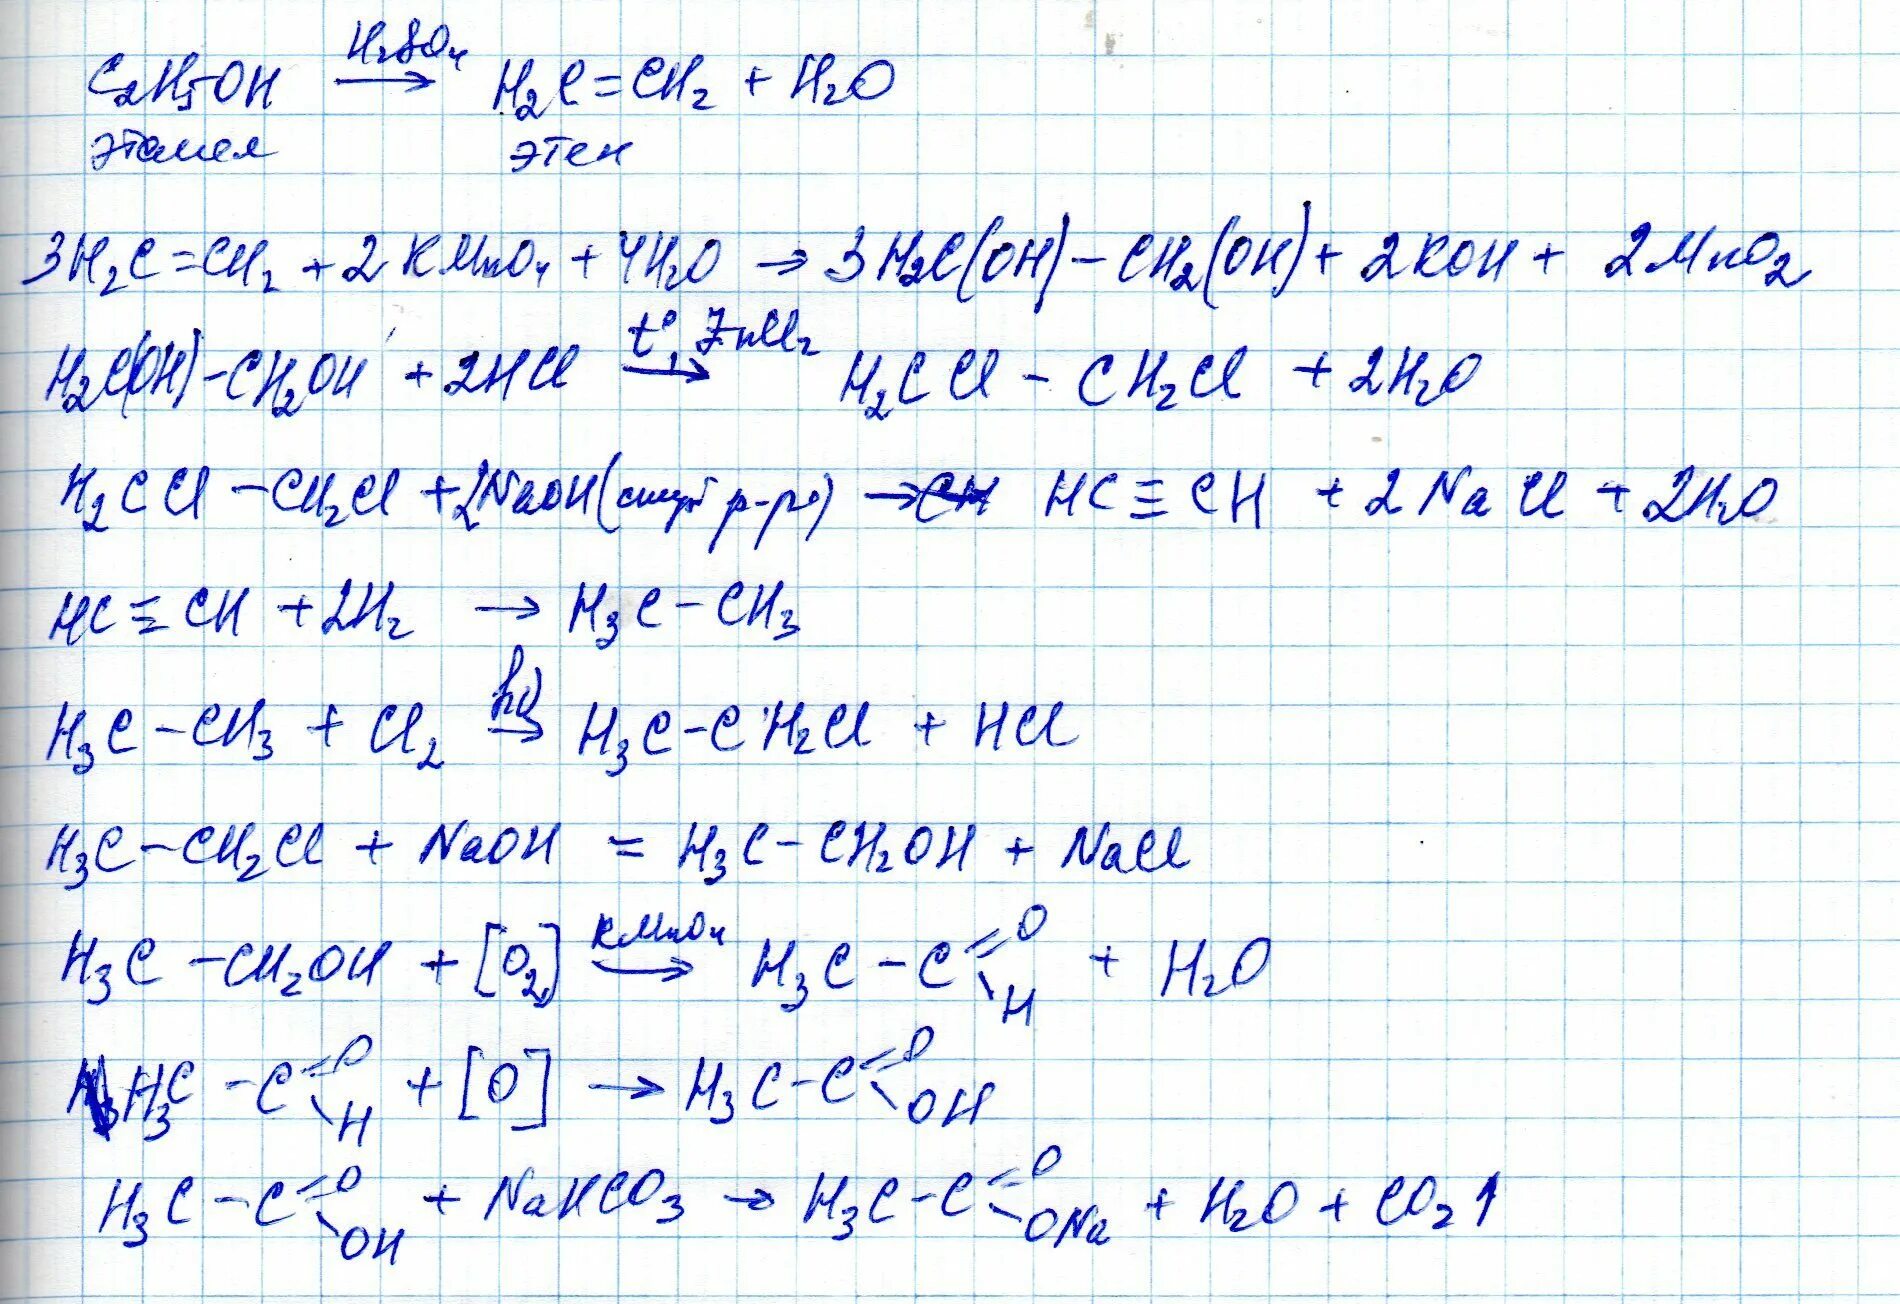 C₂H₅-OH —H₂SO₄→ H₂C=CH₂ + H₂O
этанол этен
3H₂C=CH₂ + 2KMnO₄ + 4H₂O → 3H₂C(OH)-CH₂(OH) + 2KOH + 2MnO₂
H₂C(OH)-CH₂OH + 2HCl —t°, ZnCl₂→ H₂CCl-CH₂Cl + 2H₂O
H₂CCl-CH₂Cl + 2NaOH (спирт р-р) → HC≡CH + 2NaCl + 2H₂O
HC≡CH + 2H₂ → H₃C-CH₃
H₃C-CH₃ + Cl₂ —hν→ H₃C-CH₂Cl + HCl
H₃C-CH₂Cl + NaOH = H₃C-CH₂OH + NaCl
H₃C-CH₂OH + [O₂] —KMnO₄→ H₃C-C(=O)-H + H₂O
H₃C-C(=O)-H + [O] → H₃C-C(=O)-OH
H₃C-C(=O)-OH + NaHCO₃ → H₃C-C(=O)-ONa + H₂O + CO₂↑